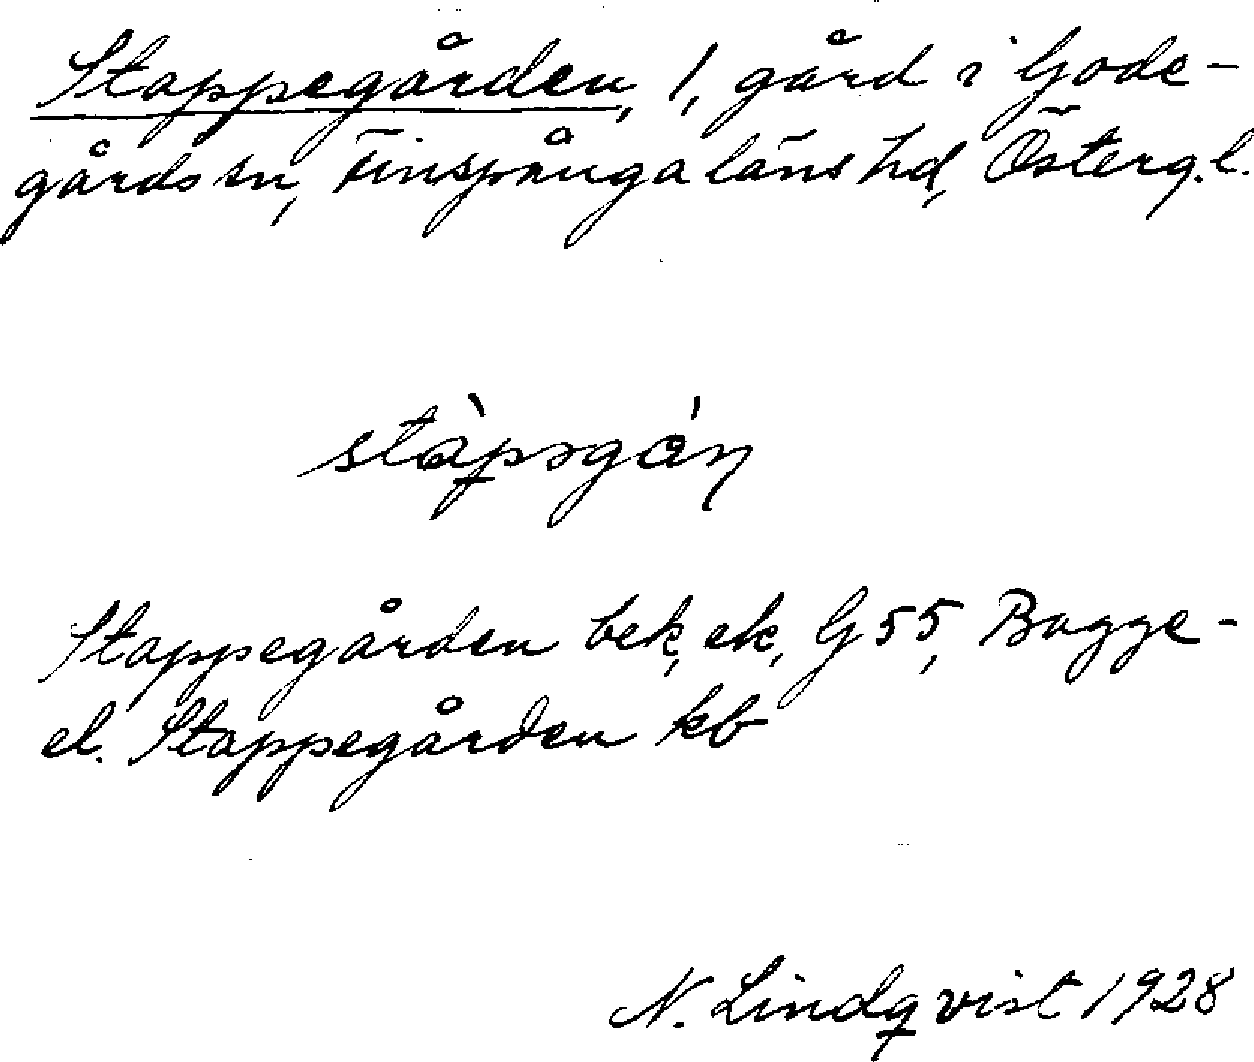 Stappegården, 1, gård i Gode-
gårds sn, Finspånga läns hd, Österg. l.
stàpəgán
Stappegården bek, ek, G 55, Bagge-
el. Stappegården kb
N. Lindqvist 1928